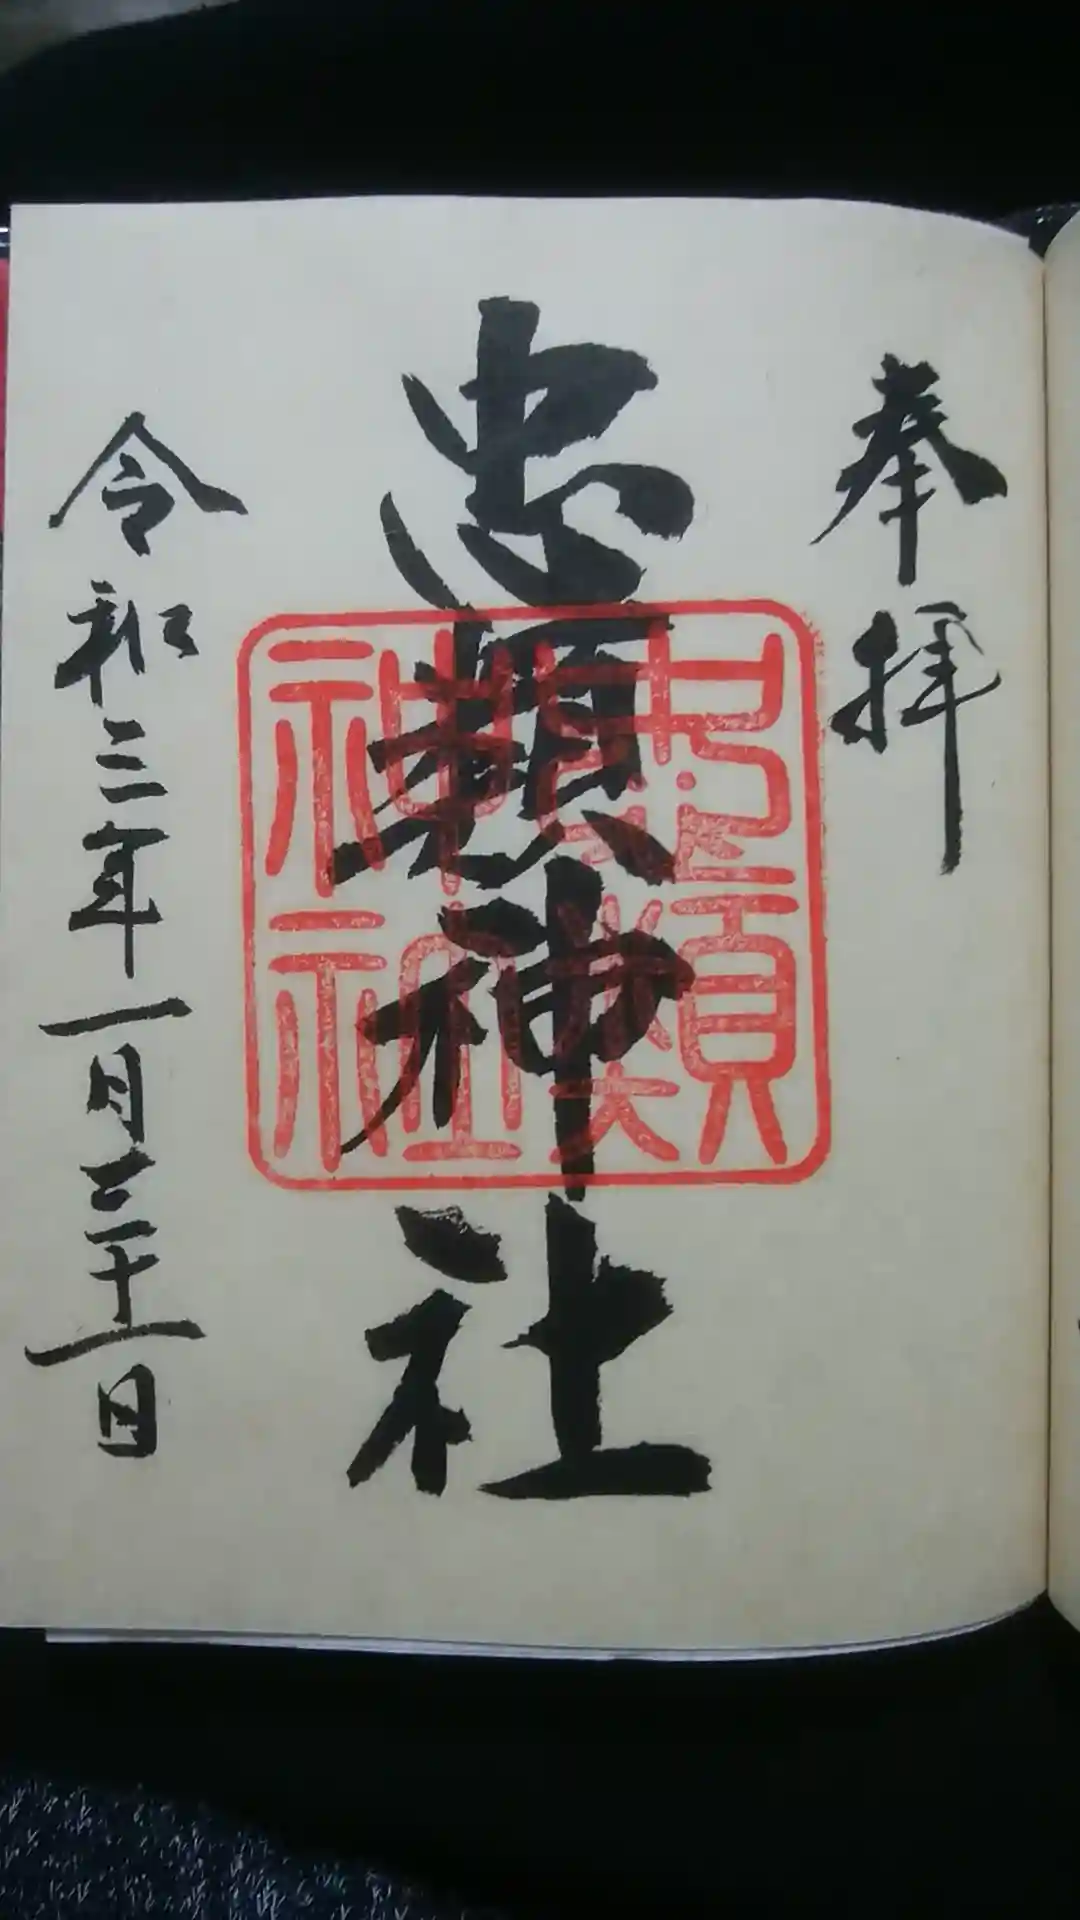 奉拝
忠類神社
忠類
神社
令和三年一月三十一日